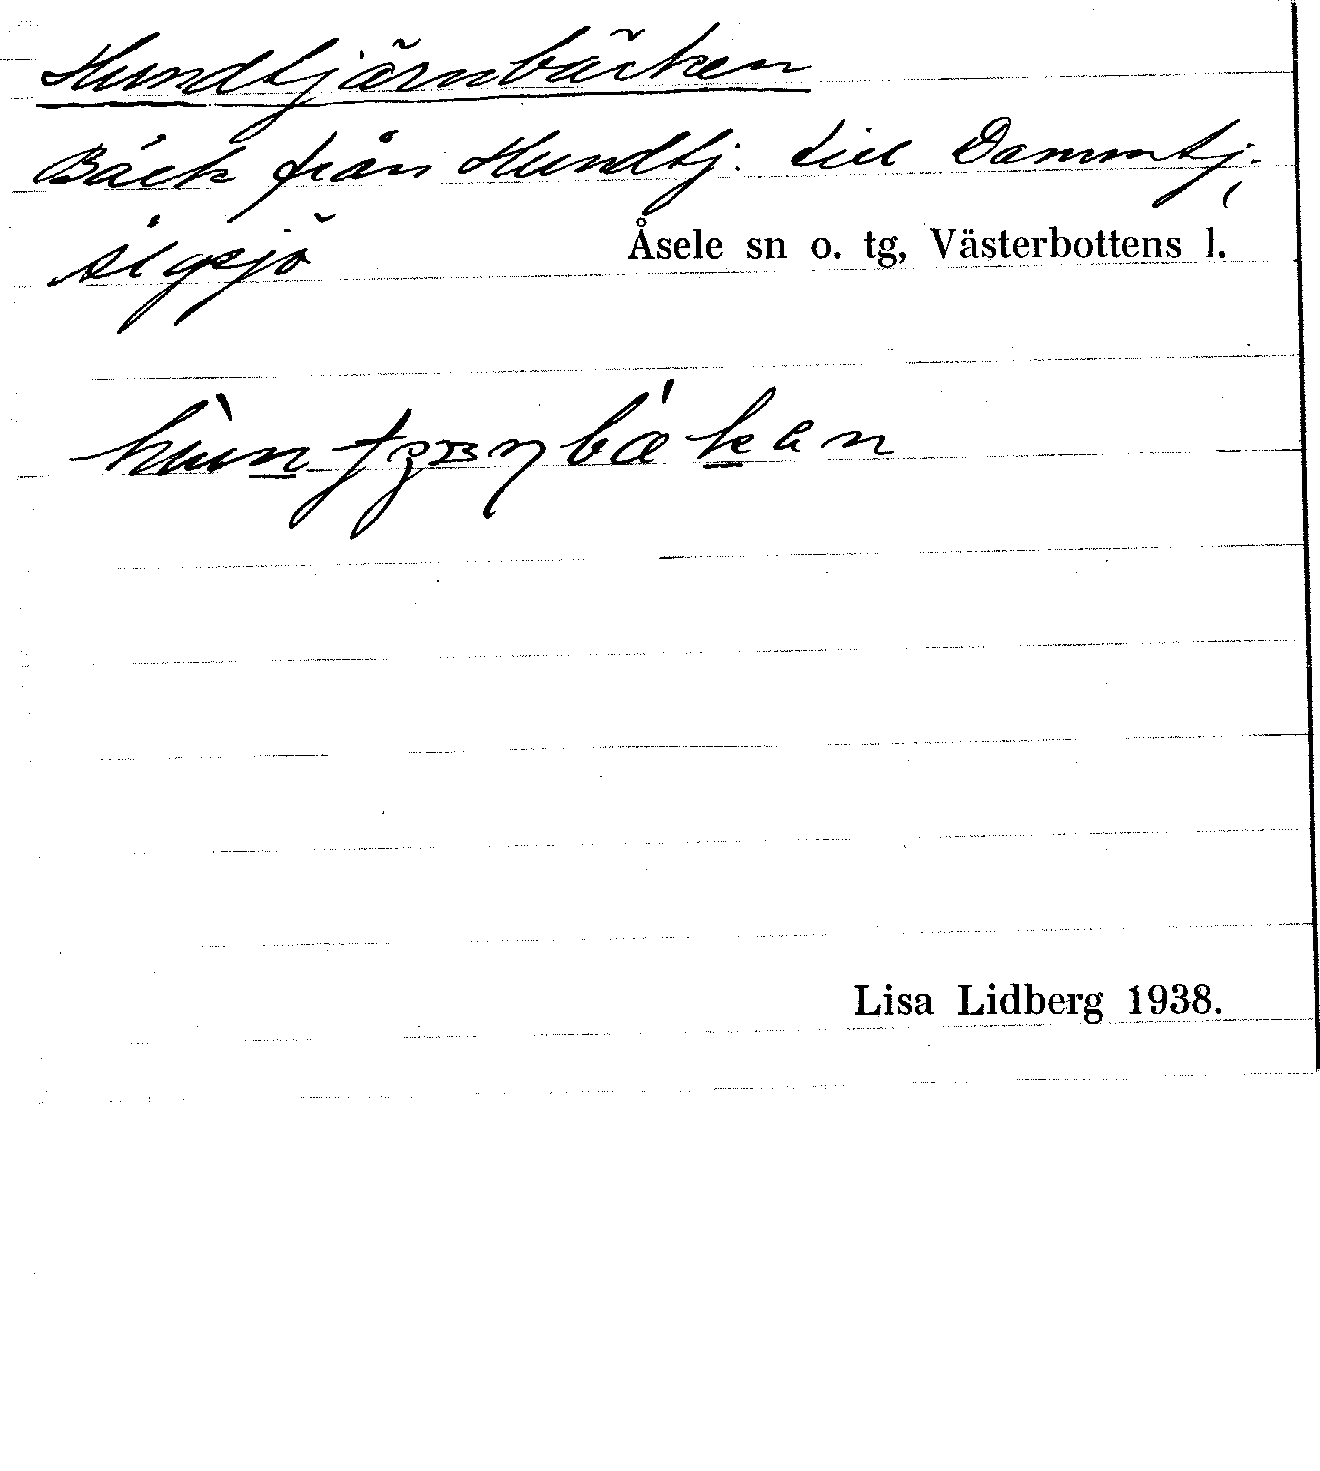 Hundtjärnbäcken
Bäck från Hundtj. till Dammtj.,
Sigsjö
Åsele sn o. tg, Västerbottens l.
Lisa Lidberg 1938.